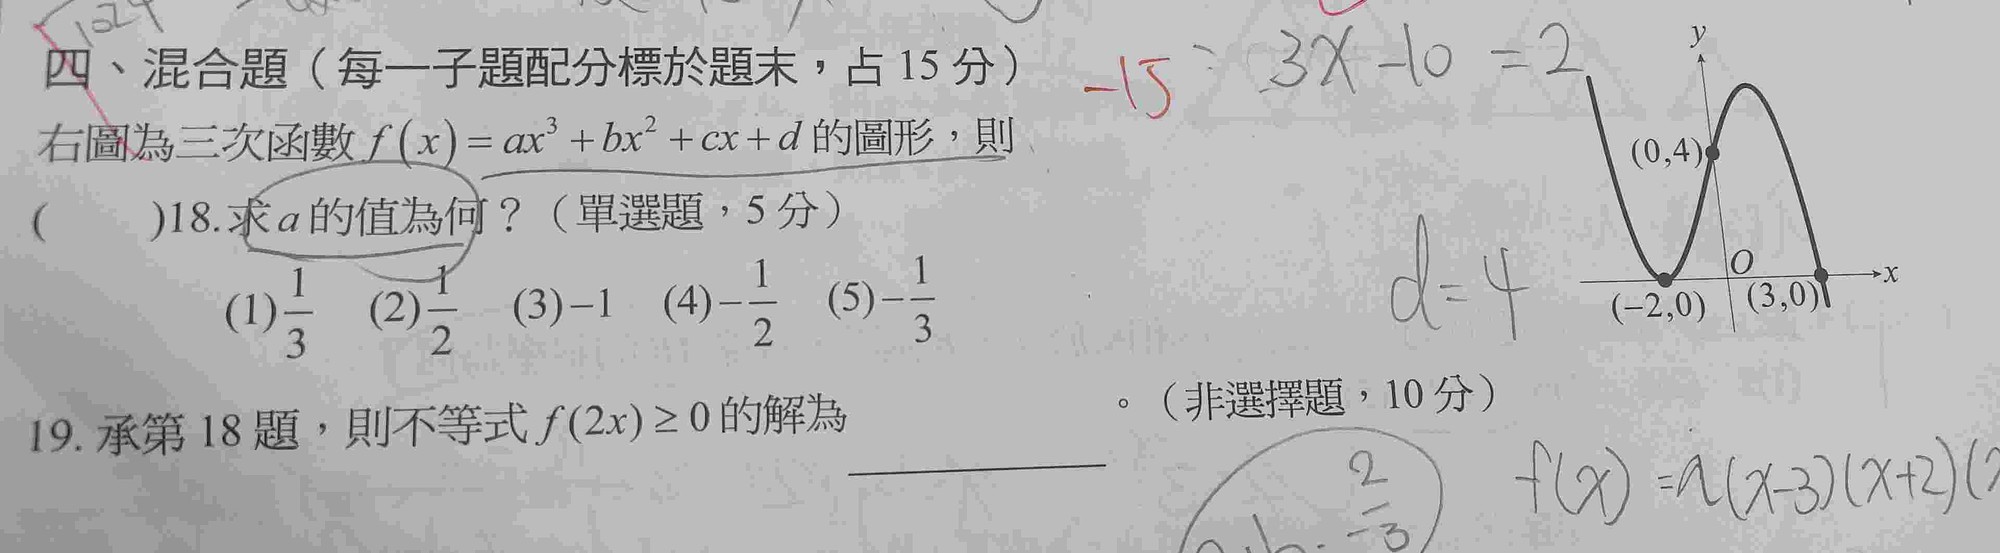 1024
四、混合題（每一子題配分標於題末，占 15 分）
-15
3x-10=2
右圖為三次函數 f(x)=ax³+bx²+cx+d 的圖形，則
( )18.求 a 的值為何？（單選題，5 分）
(1) 1/3 (2) 1/2 (3) -1 (4) -1/2 (5) -1/3
d=4
y
(0,4)
O
x
(-2,0) (3,0)
19. 承第 18 題，則不等式 f(2x) ≥ 0 的解為 ________ 。（非選擇題，10 分）
f(x)=a(x-3)(x+2)(
2
-3